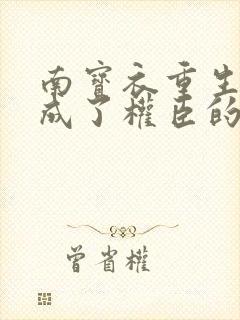 南寶衣重生
成了權臣的
曾省權